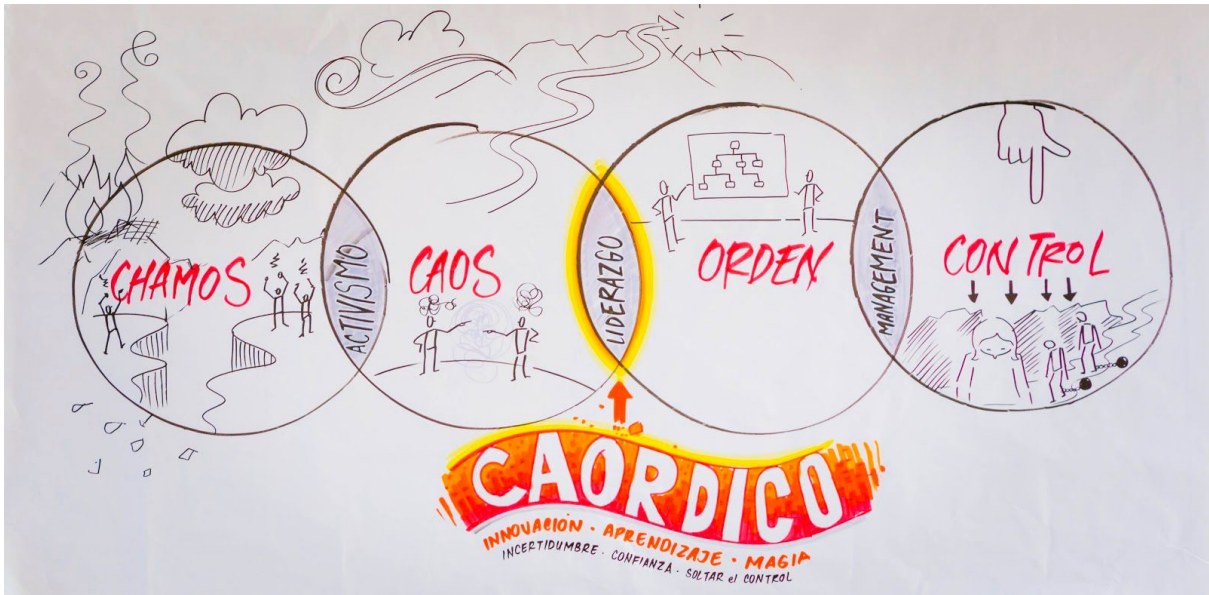 CHAMOS
ACTIVISMO
CAOS
LIDERAZGO
ORDEN
MANAGEMENT
CONTROL
CAORDICO
INNOVACIÓN · APRENDIZAJE · MAGIA
INCERTIDUMBRE · CONFIANZA · SOLTAR el CONTROL